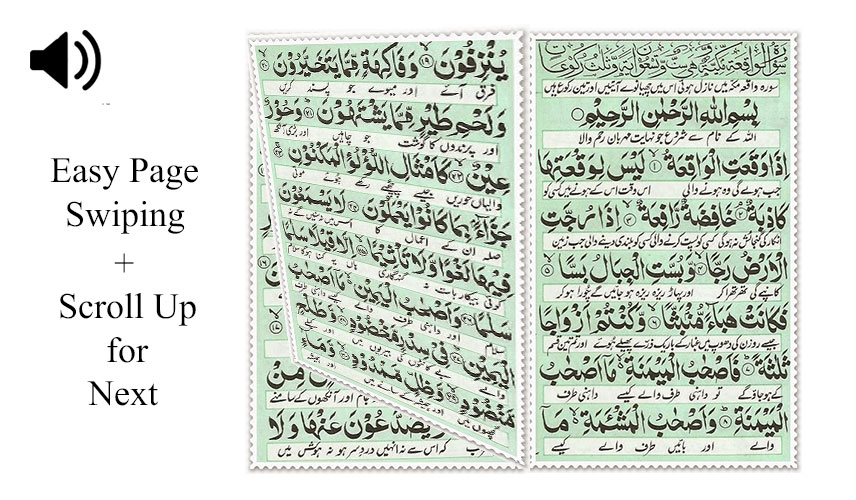 Easy Page
Swiping
+
Scroll Up
for
Next
سورہ واقعہ مکہ میں نازل ہوئی اس میں چھیانوے آیتیں اور تین رکوع ہیں
بِسْمِ اللهِ الرَّحْمٰنِ الرَّحِيْمِ
اللہ کے نام سے شروع جو نہایت مہربان رحم والا
اِذَا وَقَعَتِ الْوَاقِعَةُ ۙ۱ لَيْسَ لِوَقْعَتِهَا
جب ہولے گی وہ ہونے والی اس وقت اس کے ہونے میں کسی کو
كَاذِبَةٌ ۘ۲ خَافِضَةٌ رَّافِعَةٌ ۙ۳ اِذَا رُجَّتِ
انکار کی گنجائش نہ ہوگی کسی کو پست کرنے والی کسی کو بلندی دینے والی جب زمین
الْاَرْضُ رَجًّا ۙ۴ وَّبُسَّتِ الْجِبَالُ بَسًّا ۙ۵
کانپے گی تھرتھرا کر اور پہاڑ ریزہ ریزہ ہو جائیں گے چورا ہو کر
فَكَانَتْ هَبَآءً مُّنْۢبَثًّا ۙ۶ وَّكُنْتُمْ اَزْوَاجًا
جیسے روزن کی دھوپ میں غبار کے باریک ذرے پھیلے ہوئے اور تم تین قسم
ثَلٰثَةً ؕ۷ فَاَصْحٰبُ الْمَيْمَنَةِ ۙ مَاۤ اَصْحٰبُ
کے ہو جاؤ گے تو داہنی طرف والے کیسے داہنی طرف
الْمَيْمَنَةِ ؕ۸ وَاَصْحٰبُ الْمَشْـَٔمَةِ ۙ مَاۤ
والے اور بائیں طرف والے کیسے
يُنْزِفُوْنَ ۙ۱۹ وَفَاكِهَةٍ مِّمَّا يَتَخَيَّرُوْنَ
فرق آئے اور میوے جو پسند کریں
وَلَحْمِ طَيْرٍ مِّمَّا يَشْتَهُوْنَ ؕ۲۱ وَحُوْرٌ
اور پرندوں کا گوشت جو چاہیں اور بڑی آنکھ
عِيْنٌ ۙ۲۲ كَاَمْثَالِ اللُّؤْلُؤِ الْمَكْنُوْنِ
والیاں حوریں جیسے چھپے رکھے ہوئے موتی
جَزَآءًۢ بِمَا كَانُوْا يَعْمَلُوْنَ لَا يَسْمَعُوْنَ
صلہ ان کے اعمال کا اس میں نہ سنیں گے نہ
فِيْهَا لَغْوًا وَّلَا تَاْثِيْمًا اِلَّا قِيْلًا سَلٰمًا
کوئی بیکار بات نہ گنہگاری ہاں یہ کہنا ہوگا سلام
سَلٰمًا وَاَصْحٰبُ الْيَمِيْنِ مَاۤ اَصْحٰبُ
سلام اور داہنی طرف والے کیسے داہنی طرف
الْيَمِيْنِ فِيْ سِدْرٍ مَّخْضُوْدٍ وَّطَلْحٍ
والے بے کانٹوں کی بیریوں میں اور کیلے کے
مَّنْضُوْدٍ وَّظِلٍّ مَّمْدُوْدٍ وَّمَآءٍ
مِنْ
جام اور آنکھوں کے سامنے
يُصَدَّعُوْنَ عَنْهَا وَلَا
کہ اس سے نہ انہیں درد سر ہو نہ ہوش میں